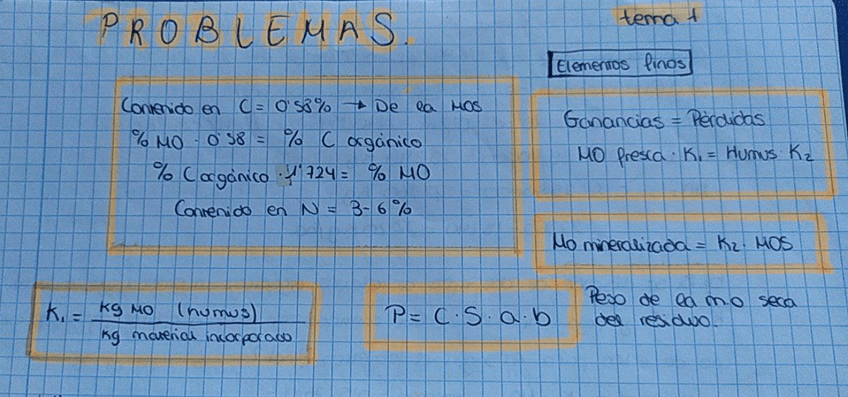 PROBLEMAS.
tema 1
Elementos finos
Contenido en C = 0'58% → De la MOS
% MO · 0'58 = % C orgánico
% C orgánico · 1'724 = % MO
Contenido en N = 3-6%
Ganancias = Pérdidas
MO fresca · K₁ = Humus · K₂
Mo mineralizada = K₂ · MOS
K₁ = Kg MO (humus)
Kg material incorporado
P = C · S · a · b
Peso de la mo seca
del residuo.